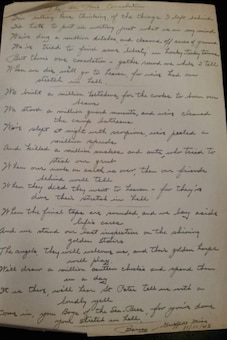 Our Consolation
I'm sitting here thinking of the things I left behind
I'd hate to put in writing just what is on my mind
We've dug a million ditches and cleared of ground
We've tried to find some
But there's one consolation - gather round me while I tell
When we die we'll go to heaven for we've had our
stretch in hell
We built a million kitchens for the cooks to burn our
beans
We stood a million guard mounts, and we've cleaned
the camp latrines
We've slept at night with we've peeled a
million spuds
And killed a million snakes and ants who tried to
steal our grub
When our work on earth is over, then our friends
behind will tell
When they died they went to heaven - for they've
done their stretch in hell
When the final taps are sounded and we lay aside
life's cares
And we stand our last inspection on the shining
golden stairs
The angels they will welcome us, and their golden harps
will play
We'll draw a million canteen checks and spend them
in a day
It is there, will hear St. Peter tell us with a
loudly yell
Come in, you Boys of the for you've done
your stretch in hell